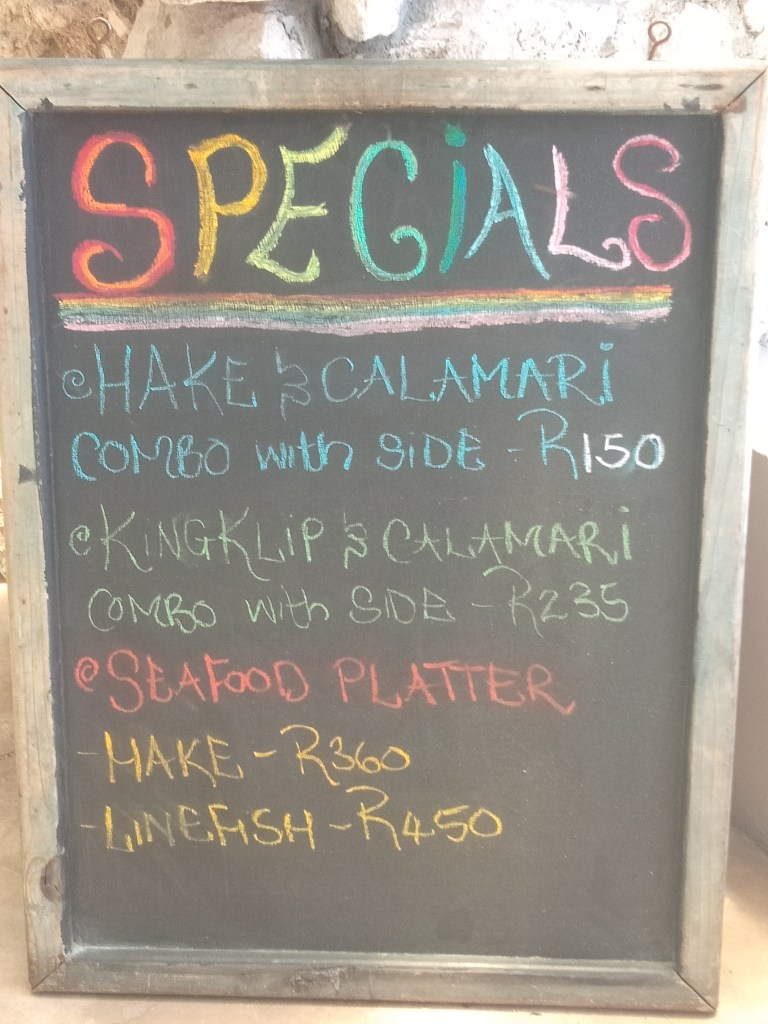 SPECiALS
@HAKE & CALAMARi
COMBO with SiDE - R150
@KiNGKLiP & CALAMARi
COMBO with SIDE - R235
@SEAFOOD PLATTER
- HAKE - R360
- LiNEFiSH - R450